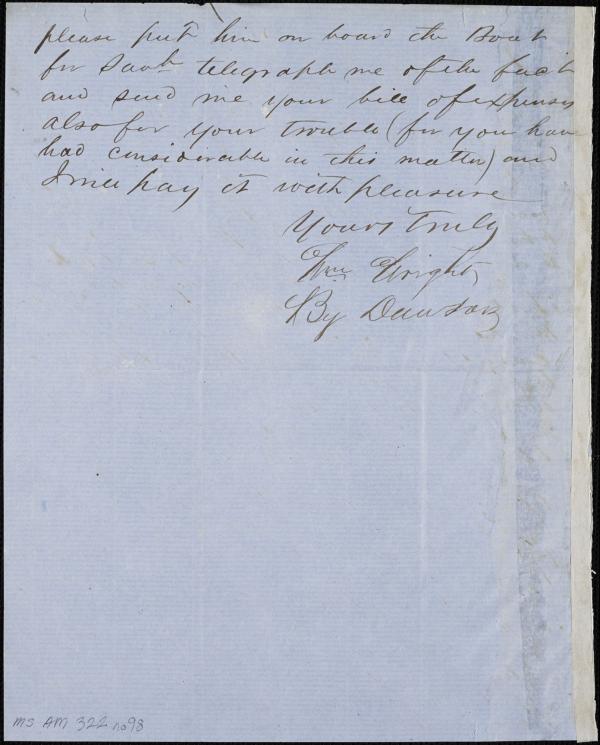 please put him on board the Boat
for Savh telegraph me of the fact
and send me your bill of expenses
also for your trouble (for you have
had considerable in this matter) and
I will pay it with pleasure
Yours Truly
Wm Wright
By Dawson
MS AM 322 no 98